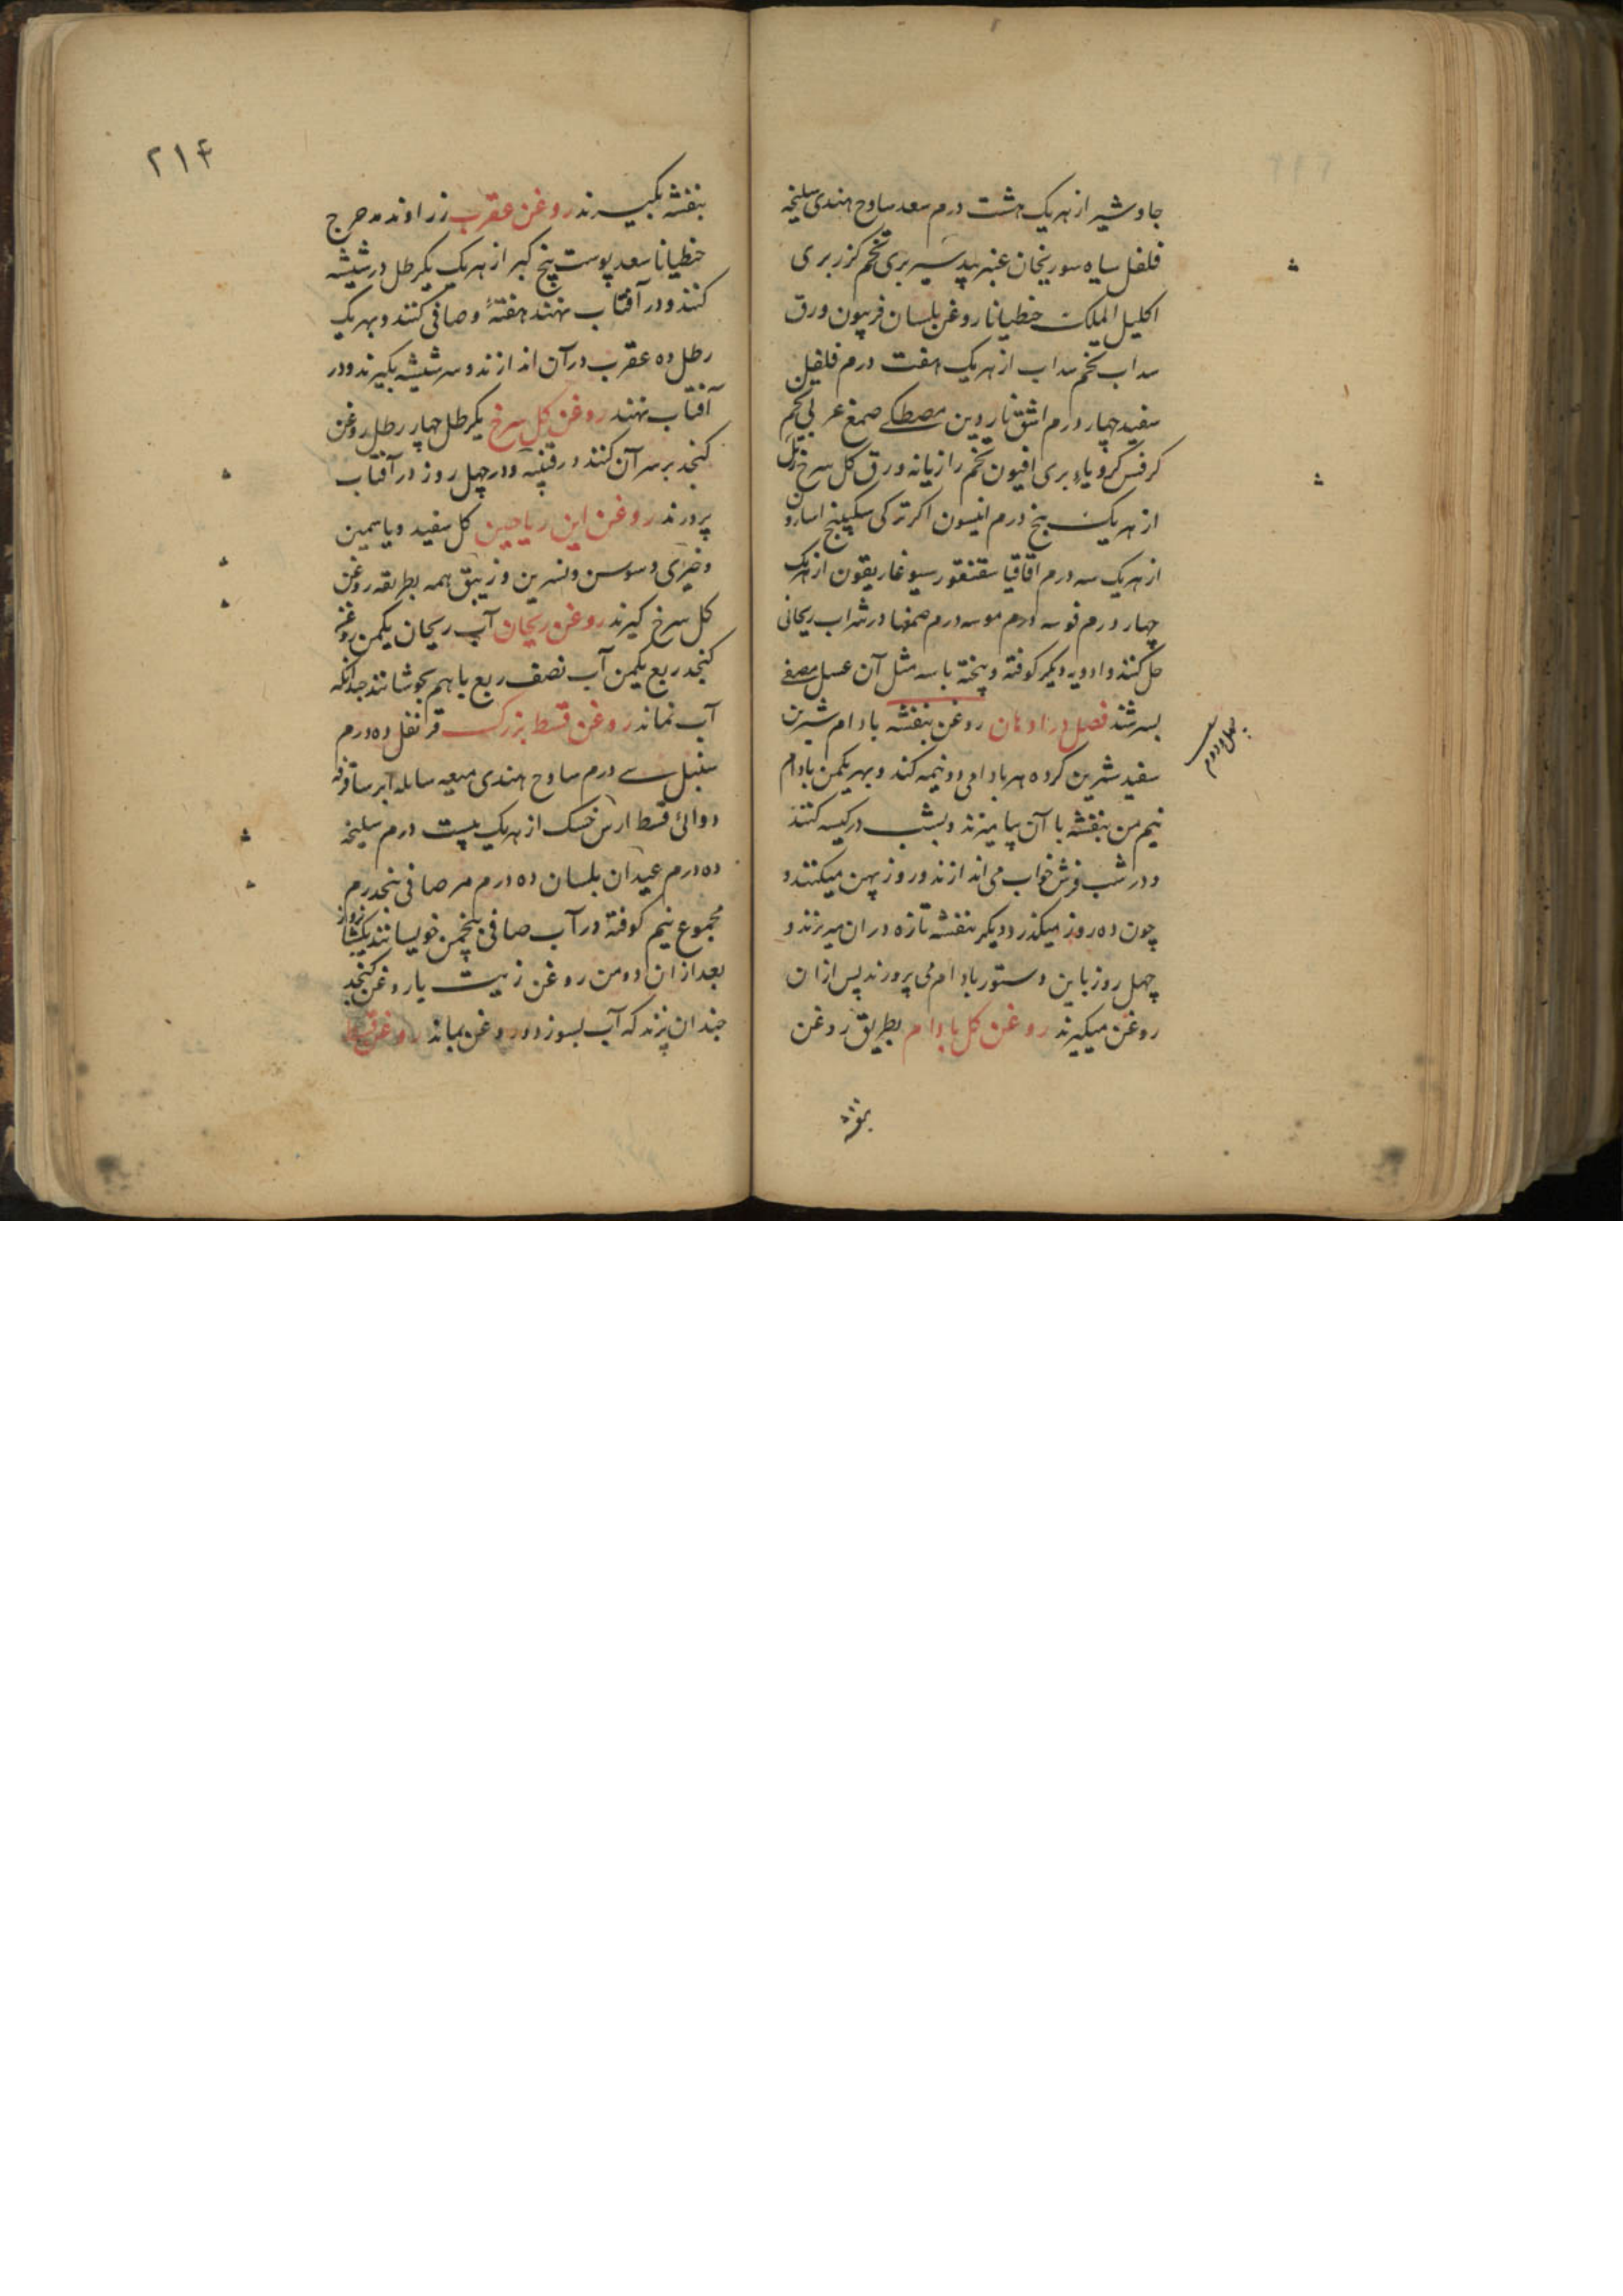 جاوشیر از هریک هشت درم سعد ساوج هندی سلیخه
فلفل سیاه سورنجان عنبر بید سیر بری تخم کزر بری
اکلیل الملک خطیانا روغن بلسان فربیون ورق
سداب تخم سداب از هریک هفت درم فلفل
سفید چهار درم اشق ناردین مصطکی صمغ عربی تخم
کرفس کرویاء بری افیون تخم رازیانه ورق کل سرخ
از هریک پنج درم انیسون اکر ترکی سکبینج اسارون
از هریک سه درم اقاقیا سقنقور سیو غاریقون از هریک
چهار درم فو سه درم مو سه درم صمغها در شراب ریحانی
حل کنند و ادویه دیکر کوفته و پیخته با سه مثل آن عسل مصفی
بسرشند فصل در ادهان روغن بنفشه بادام شیرین
سفید شیرین کرده هر بادامی دو نیمه کند و بهر یکمن بادام
نیم من بنفشه با آن بیامیزند و بشب در کیسه کنند
و در شب فرش خواب می اندازند و روز پهن میکنند و
چون ده روز میکذرد دیکر بنفشه تازه در ان میریزند و
چهل روز باین دستور بادام می پرورند پس از ان
روغن میکیرند روغن کل بادام بطریق روغن
بنفشه
۲۱۴
بنفشه بکیرند روغن عقرب زراوند مدحرج
خطیانا سعد پوست بیخ کبر از هریک یکرطل در شیشه
کنند و در آفتاب نهند هفتهٔ و صافی کنند و بهر یک
رطل ده عقرب در آن اندازند و سر شیشه بکیرند و در
آفتاب نهند روغن کل سرخ یکرطل چهار رطل روغن
کنجد بر سر آن کنند در قنینه و در چهل روز در آفتاب
پرورند روغن این ریاحین کل سفید و یاسمین
و خیری و سوسن و نسرین و زنبق همه بطریقه روغن
کل سرخ کیرند روغن ریحان آب ریحان یکمن روغن
کنجد ربع یکمن آب نصف ربع باهم بجوشانند چندانکه
آب نماند روغن قسط بزرک قرنفل ده درم
سنبل سی درم ساوج هندی میعه سایله ابرسا قرفه
دوائی قسط ارس خسک از هریک بیست درم سلیخه
ده درم عیدان بلسان ده درم مر صافی پنجدرم
مجموع نیم کوفته در آب صافی پنجمن خویسانند یکشباروز
بعد از ان دو من روغن زیت یا روغن کنجد
چندان پزند که آب بسوزد و روغن بماند روغن قسط